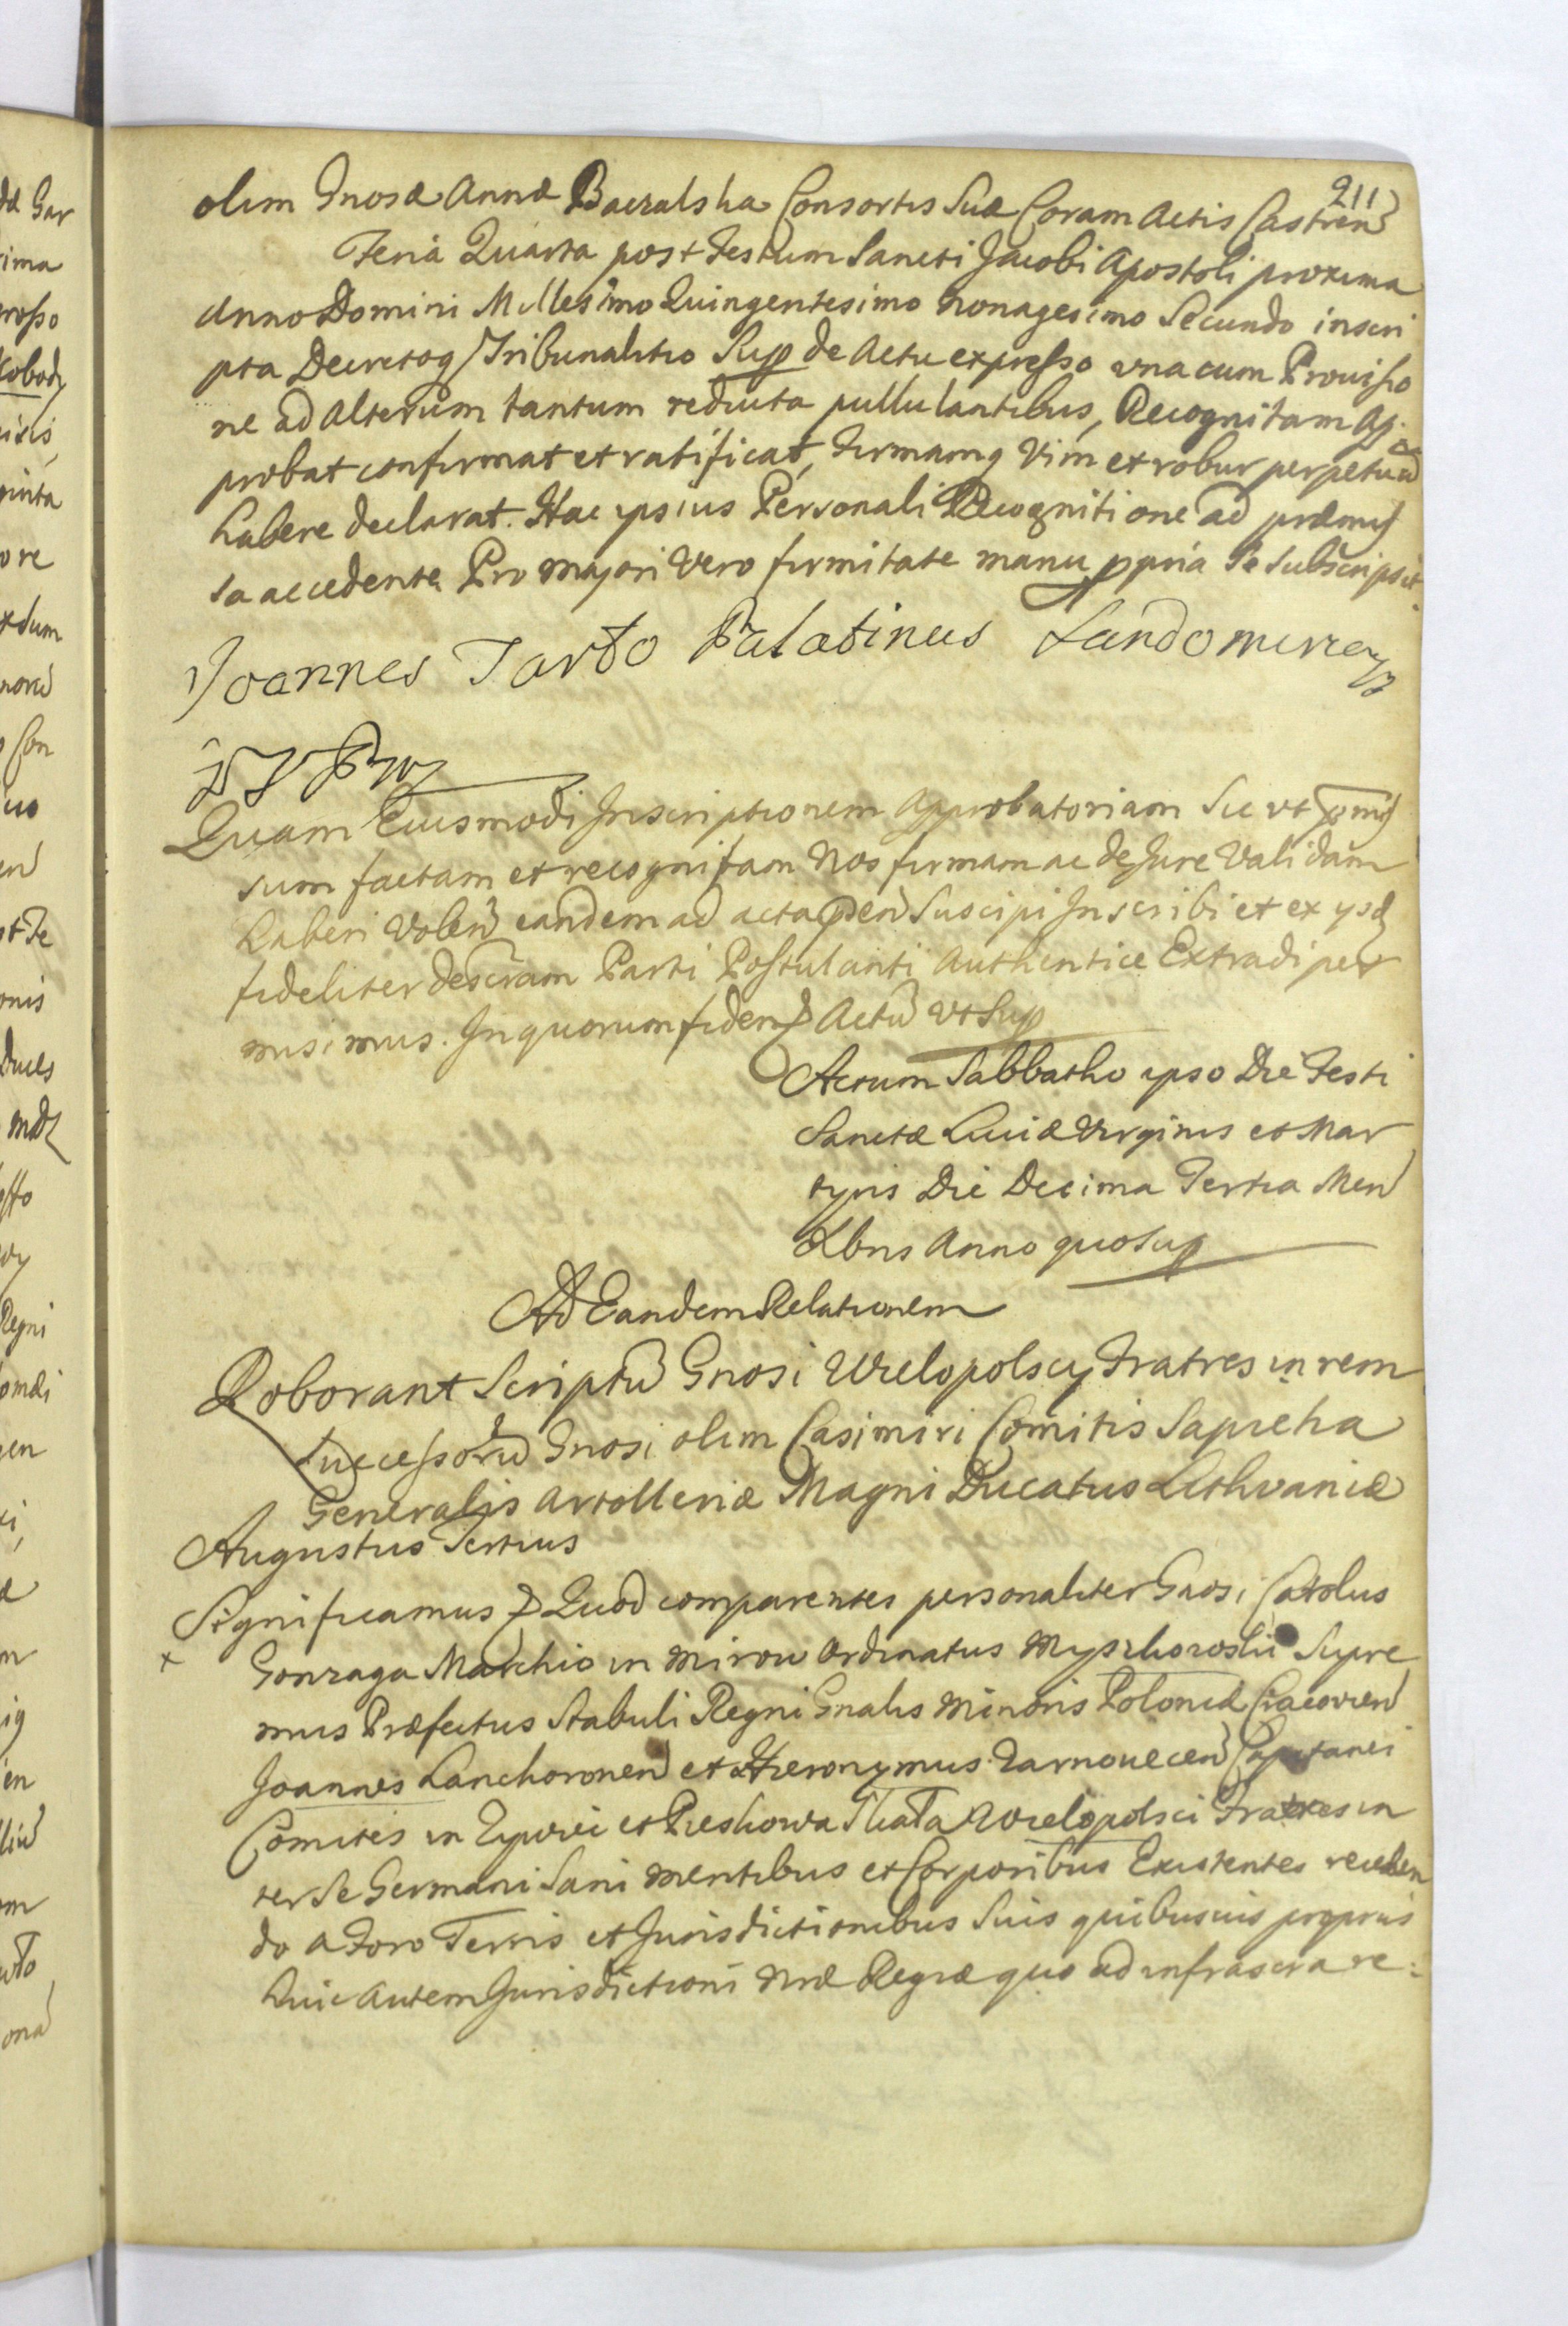 211
olim Gnosæ Annæ Baczalska Consortis Suæ Coram Actis Castren
Feria Quarta post Festum Sancti Jacobi Apostoli proxima
Anno Domini Millesimo Quingentesimo Nonagesimo Secundo inscri
pta Decretoq Tribunalitio Sup de Actu expresso vna cum Prouisio
ne ad Alterum tantum reducta pullulantibus, Recognitam Ap:
probat confirmat et ratificat, firmamq Vim et robur perpetuũ
habere declarat. Hac ipsius Personali Recognitione ad præmis
sa accedente. Pro majori Vero firmitate manu ppria Se Subscripsit.
Joannes Tarło Palatinus Sandomirien
Quam Eiusmodi Inscriptionem Approbatoriam Sic vt pmis
sum factam et recognitam Nos firmam ac de Jure Validam
haberi Volen eandem ad acta pñen Suscipi Inscribi et ex ysd
fideliter descriptam Parti Postulanti Authentice Extradi per
misimus. In quorum fidem Actũ vt Sup
Actum Sabbatho ipso Die Festi
Sanctæ Luciæ Virginis et Mar
tyris Die Decima Tertia Men
Xbris Anno quo sup
Ad Eandem Relationem
Roborant Scriptũ Gnosi Wielopolscy Fratres in rem
Successorũ Gnosi olim Casimiri Comitis Sapieha
Generalis Artolleriæ Magni Ducatus Lithvaniæ
Augustus Tertius
Significamus Quod comparentes personaliter Gnosi Carolus
x Gonzaga Marchio in Mirow Ordinatus Myszkowski Supre
mus Præfectus Stabuli Regni Gnalis Minoris Poloniæ Cracovien
Joannes Lanckoronen et Hieronymus Zarnovecen Capitanei
Comites in Zywiec et Pieskowa Skała Wielopolsci Fratres in
ter Se Germani Sani Mentibus et Corporibus Existentes receden
do a Foro Terris et Jurisdictionibus Suis quibusuis proprijs
huic autem Jurisdictioni Nræ Regiæ quo ad infrascra re: